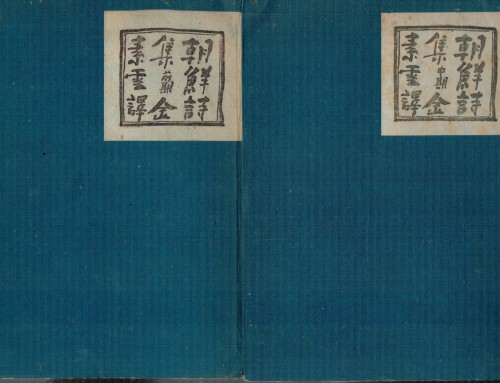 朝鮮詩
集前期金
素雲譯
朝鮮詩
集中期金
素雲譯